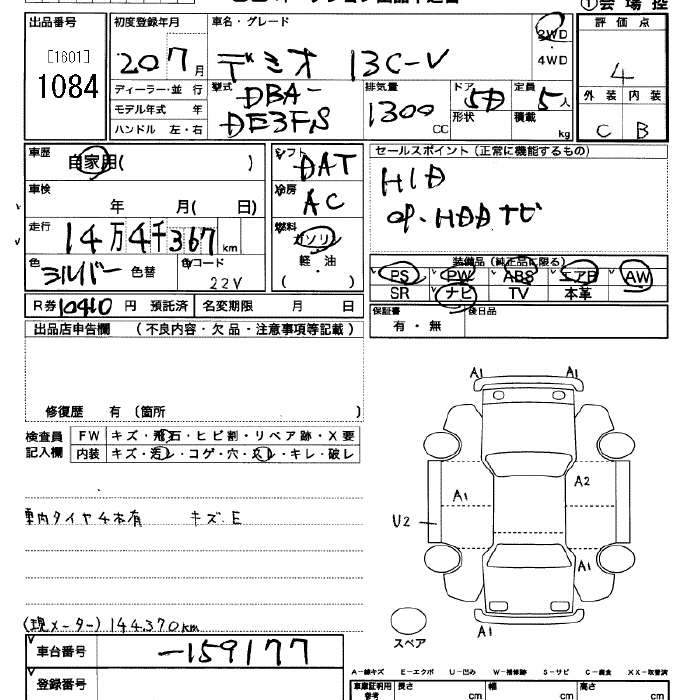 ①会場控
出品番号
[1601]
1084
初度登録年月
20 7月
車名・グレード
デミオ 13C-V
2WD
4WD
評価点
4
ディーラー・並行
モデル年式 年
ハンドル 左・右
型式
DBA-
DE3FS
排気量
1300
CC
ドア
形状
5D
定員
5人
積載
kg
外装 内装
C B
車歴
自家用( )
車検
年 月( 日)
走行
14万4千367km
色
シルバー
色替
色コード
22V
シフト
DAT
冷房
AC
燃料
ガソリン
軽・油
( )
セールスポイント(正常に機能するもの)
HID
OP. HDDナビ
装備品(純正品に限る)
PS PW ABS エアB AW
SR ナビ TV 本革
R券 10410 円 預託済 名変期限 月 日
保証書
有・無
後日品
出品店申告欄 (不良内容・欠品・注意事項等記載)
修復歴 有 (箇所 )
検査員
記入欄
FW キズ・飛石・ヒビ割・リペア跡・X要
内装 キズ・汚レ・コゲ・穴・スレ・キレ・破レ
車内タイヤ4本有 キズE
(現メーター) 144,370km
A1 A1
A1
A2
U2
A1
A1
スペア
車台番号
-159177
登録番号
A-線キズ E-エクボ U-凹み W-補修跡 S-サビ C-腐食 XX-取替済
車庫証明用
参考
長さ cm
幅 cm
高さ cm